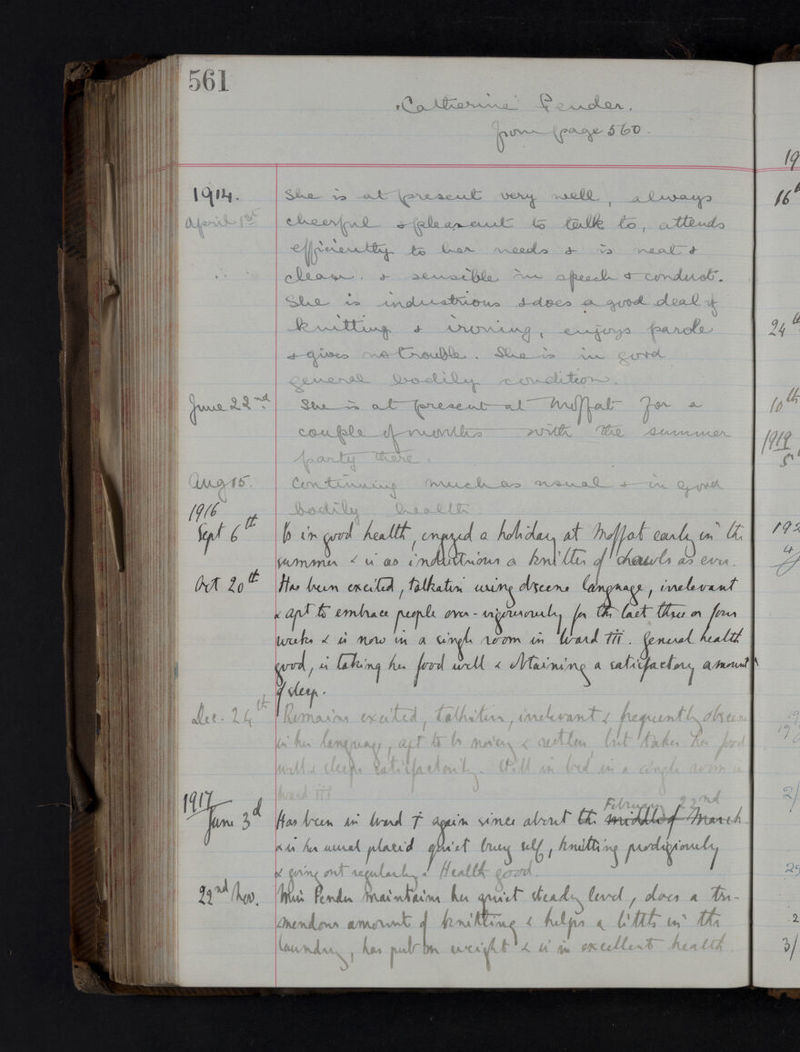 561
Catherine Pender.
from page 560.
1914. She is at present very well, always
April 1st cheerful & pleasant to talk to, attends
efficiently to her needs & is neat &
clean. & sensible in speech & conduct.
She is industrious & does a good deal of
knitting & ironing, enjoys parole
& gives no trouble. She is in good
general bodily condition.
June 22nd. She is at present at Moffat for a
couple of months with the summer
party there.
Aug 15. Continuing much as usual & in good
bodily health.
1916
Sept 6th Is in good health, enjoyed a holiday at Moffat early in the
summer & is as industrious a knitter of shawls as ever.
Oct 20th Has been excited, talkative using obscene language, irrelevant
& apt to embrace people over-vigorously for the last three or four
weeks & is now in a single room in Ward III. General health
good, is taking her food well & obtaining a satisfactory amount
of sleep.
Dec. 24th Remains excited, talkative, irrelevant & frequently obscene
in her language, apt to be noisy & restless, but takes her food
well & sleeps satisfactorily. Still in bed in a single room in
Ward III
1917
June 3d Has been in Ward I again since about the middle of March February 22nd
& is her usual placid quiet busy self, knitting prodigiously
& going out regularly. Health good.
22nd Nov. Miss Pender maintains her quiet steady level, does a tre-
mendous amount of knitting & helps a little in the
laundry, has put on weight & is in excellent health.
19
16th
24th
10th
1919
192
2/
29
2
3/